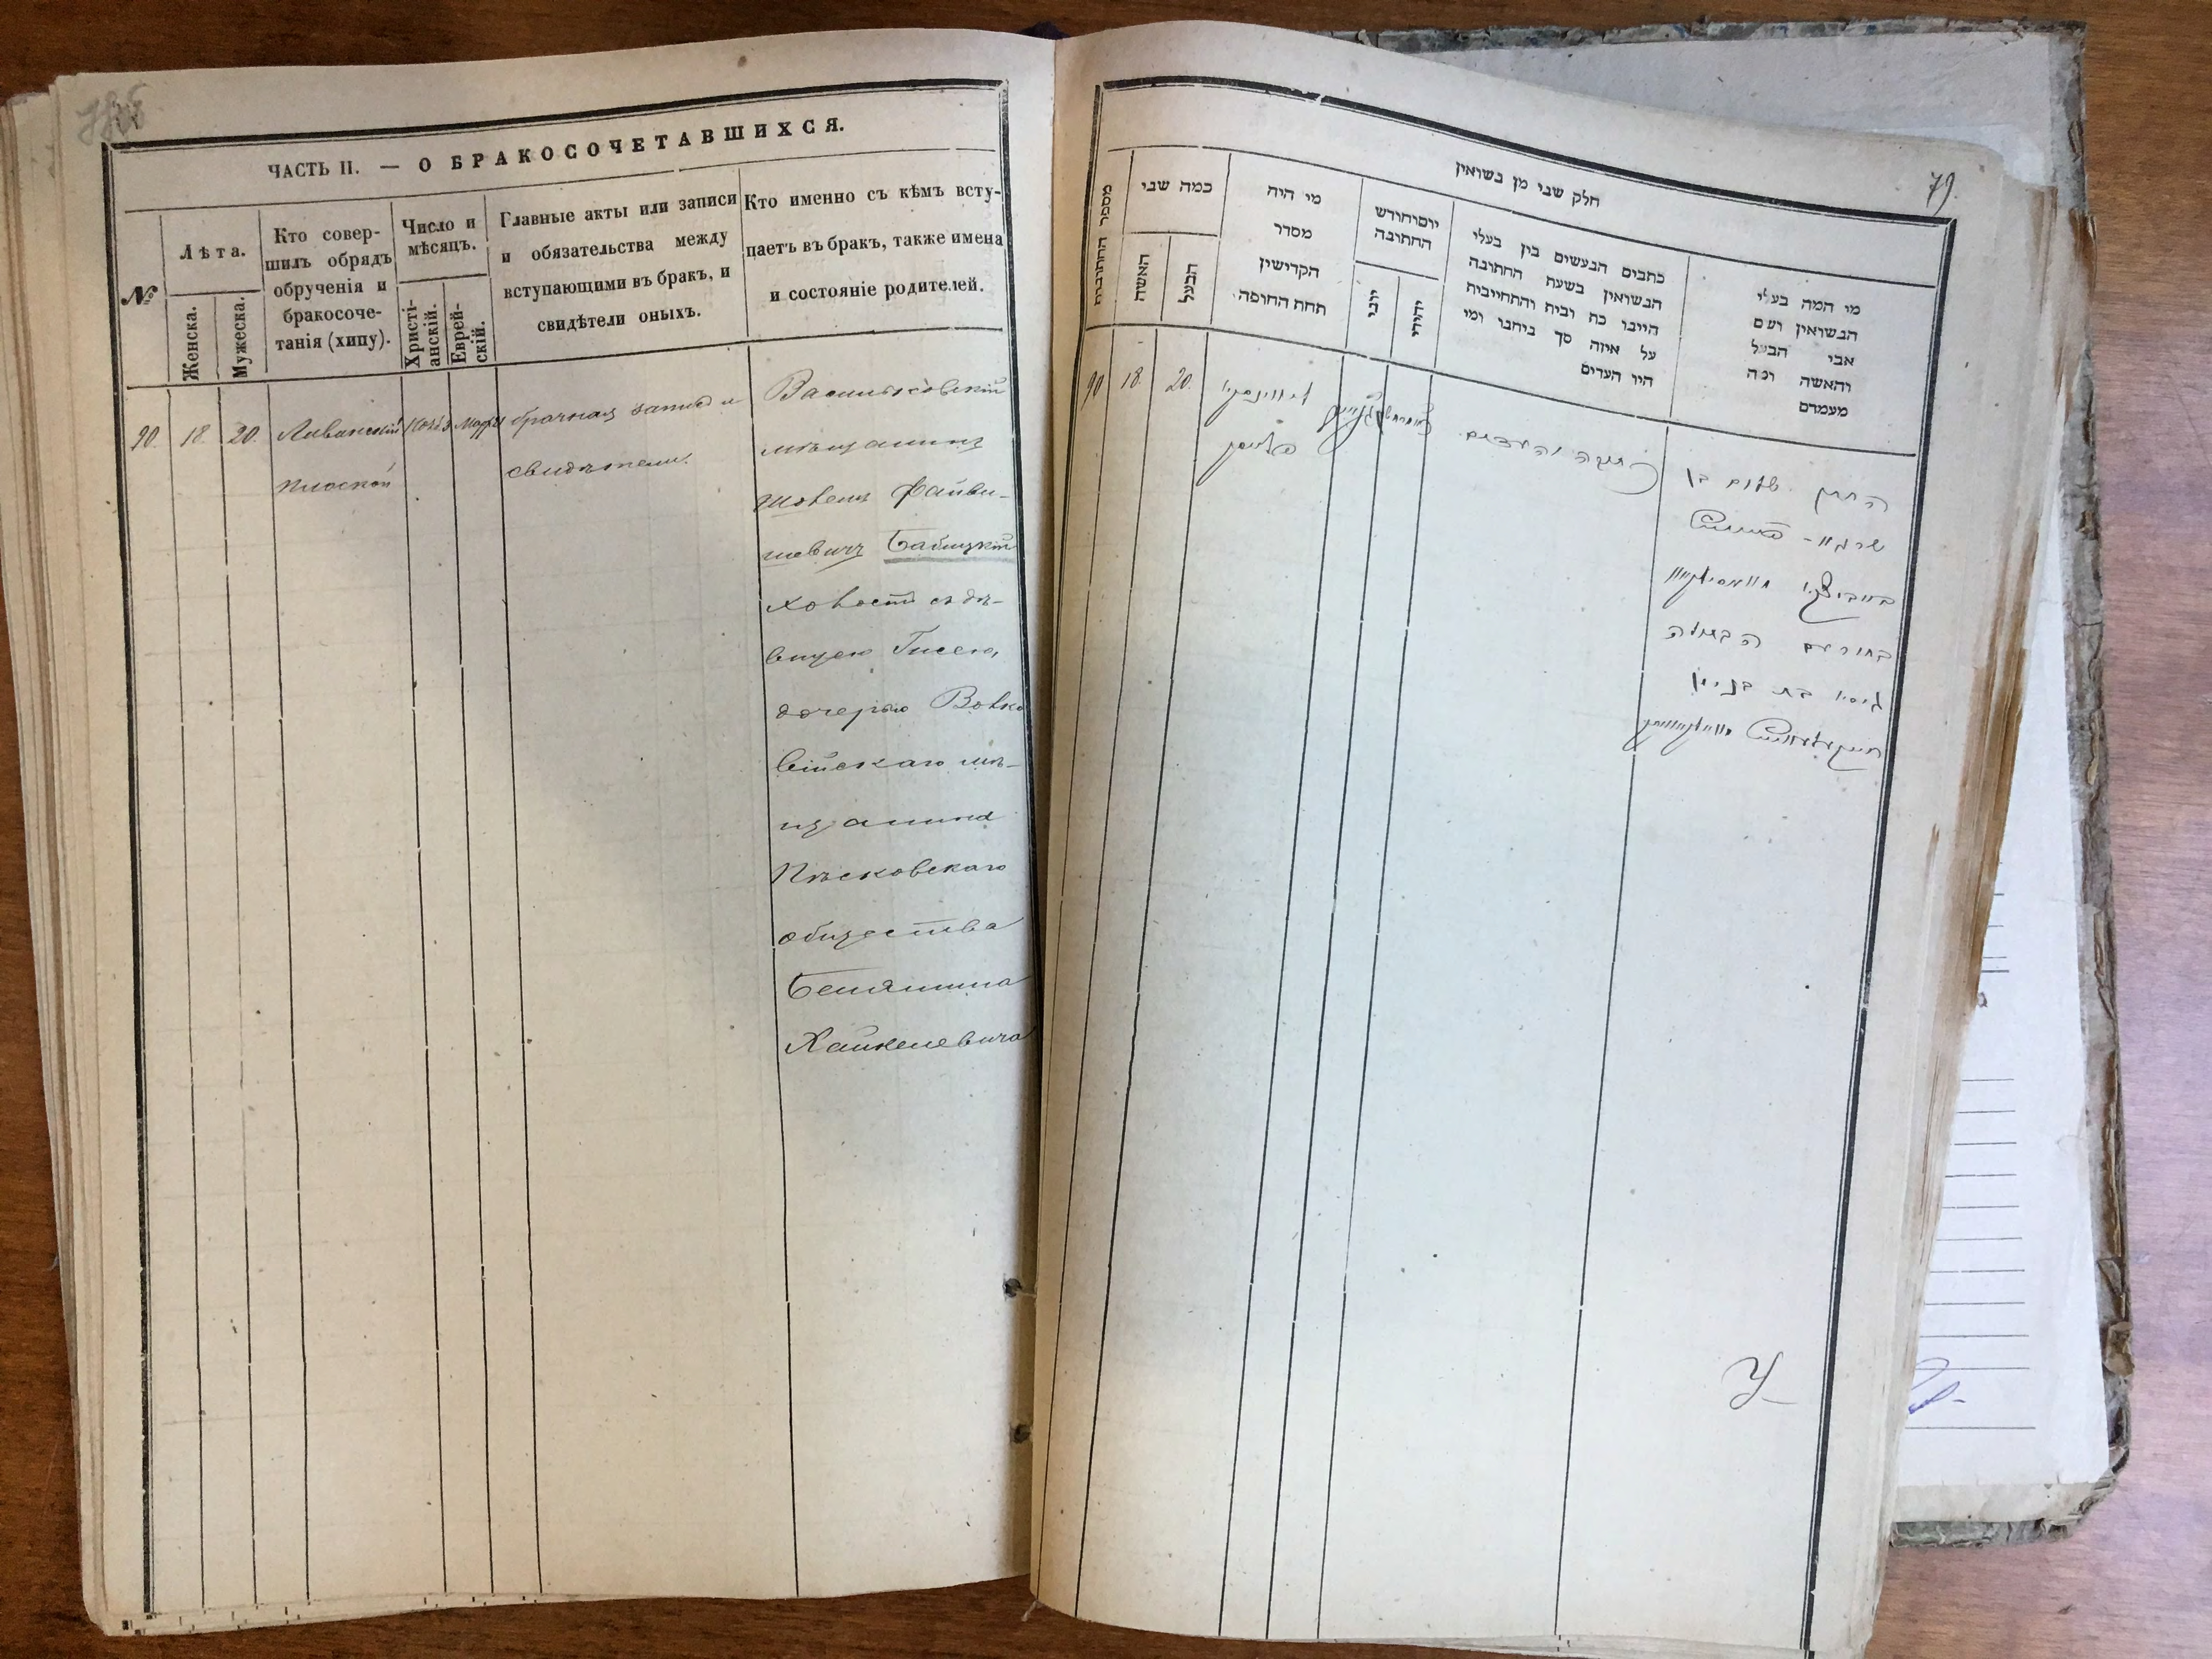 ЧАСТЬ II. — О БРАКОСОЧЕТАВШИХСЯ.
№
Лѣта.
Женска.
Мужеска.
Кто совер-
шилъ обрядъ
обрученія и
бракосоче-
танія (хипу).
Число и
мѣсяцъ.
Христі-
анскій.
Еврей-
скій.
Главные акты или записи
и обязательства между
вступающими въ бракъ, и
свидѣтели оныхъ.
Кто именно съ кѣмъ всту-
паетъ въ бракъ, также имена
и состояніе родителей.
90.
18.
20.
брачная запись и
свидѣтели.
Васильковскій
мѣщанинъ
Шовель Файви-
шевичъ Бабицкій
холостъ съ дѣ-
вицею Гисею,
дочерью Волко
війскаго мѣ-
щанина
Пѣсковскаго
общества
Беніамина
Хайкелевича
79.
חלק שני מן נשואין
מספר החתונות
כמה שני
האשה
הבעל
מי היה
מסדר
הקדישין
תחת החופה.
יום וחודש
החתונה
יוני
יהודי
כתבים הנעשים בין בעלי
הנשואין בשעת החתונה
הייבו כח ובית והתחייבות
על איזה סך ביחבו ומי
היו העדים
מי המה בעלי
הנשואין ועם
אבי הבעל
והאשה ומה
מעמדם
90
18.
20.
כתובה והעדים
החתן שלום בן
שרגא
בחור עם הבתולה
גיסיא בת בנימין